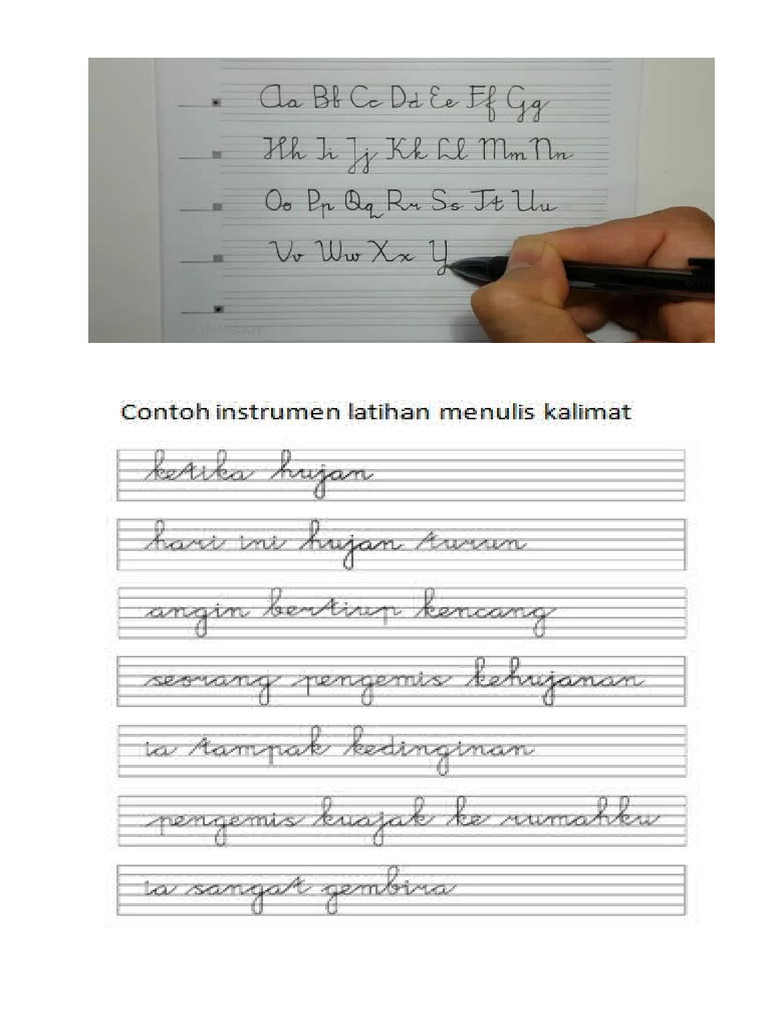 Aa Bb Cc Dd Ee Ff Gg
Hh Ii Jj Kk Ll Mm Nn
Oo Pp Qq Rr Ss Tt Uu
Vv Ww Xx Y
Contoh instrumen latihan menulis kalimat
ketika hujan
hari ini hujan turun
angin bertiup kencang
seorang pengemis kehujanan
ia tampak kedinginan
pengemis kuajak ke rumahku
ia sangat gembira